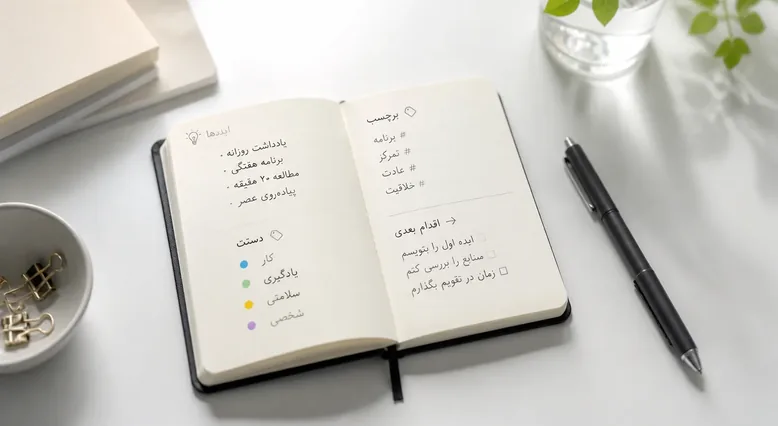 برچسب
# برنامه
# تمرکز
# عادت
# خلاقیت
اقدام بعدی
ایده اول را بتویسم
منابع را بررسی کتم
زمان در تقویم بگذارم
ایندها
یادداشت روزانه ·
برنامه هفتگی ·
مطالعه ۲۰ هقیقه ·
پیاده‌روی عصر ·
دستت
کار
یادگیری
سلامتی
شخصی